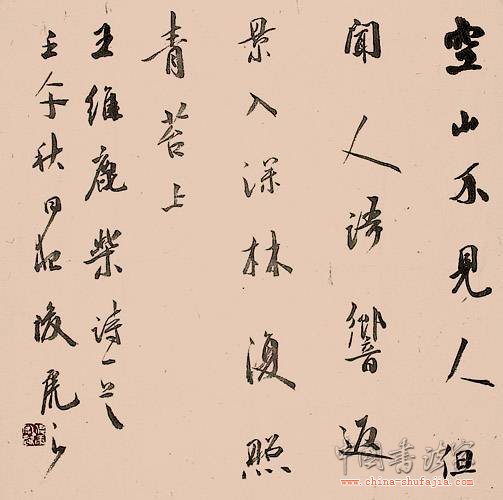 空山不見人但
聞人語響返
景入深林復照
青苔上
王維鹿柴詩一首
壬午秋日
中国书法家
www.china-shufajia.com